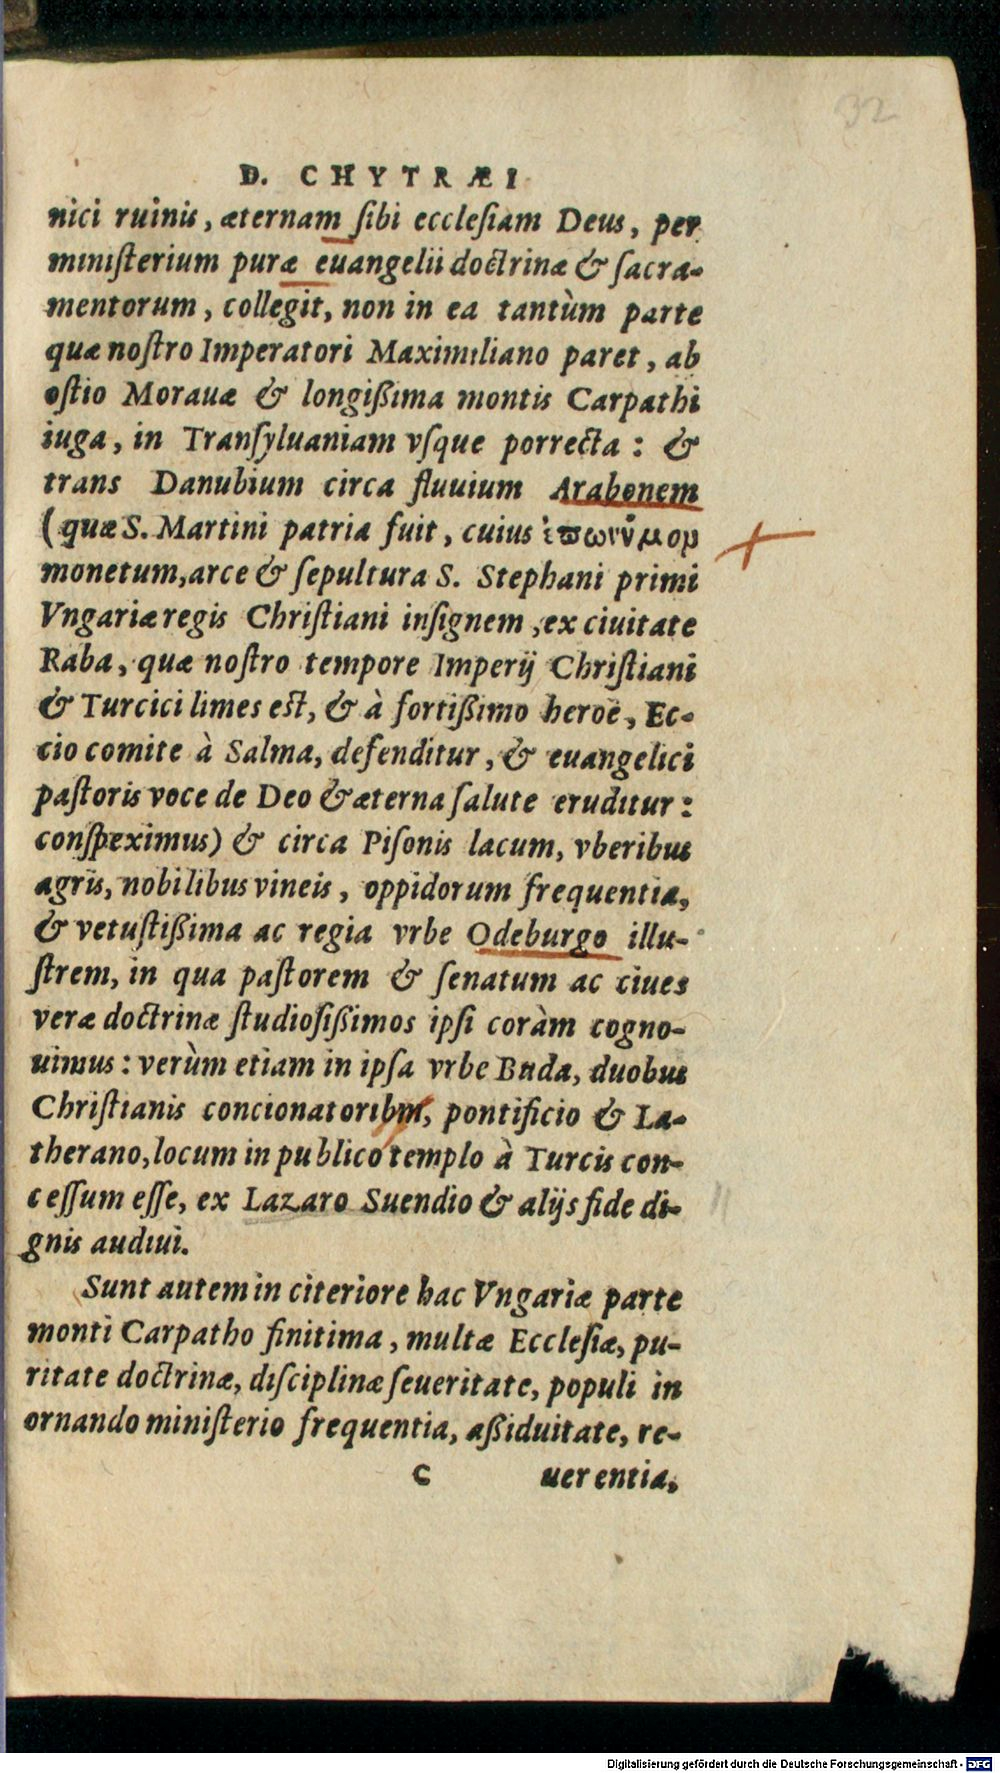 32
D. CHYTRÆI
nici ruinis, æternam ſibi eccleſiam Deus, per
miniſterium puræ euangelii doctrinæ & ſacra-
mentorum, collegit, non in ea tantùm parte
quæ noſtro Imperatori Maximiliano paret, ab
oſtio Morauæ & longißima montis Carpathi
iuga, in Tranſyluaniam vſque porrecta: &
trans Danubium circa fluuium Arabonem
(quæ S. Martini patria fuit, cuius ἐπωνύμον
monetum, arce & ſepultura S. Stephani primi
Vngariæ regis Chriſtiani inſignem, ex ciuitate
Raba, quæ noſtro tempore Imperij Chriſtiani
& Turcici limes eſt, & à fortißimo heroë, Ec-
cio comite à Salma, defenditur, & euangelici
paſtoris voce de Deo & æterna ſalute eruditur:
conſpeximus) & circa Piſonis lacum, vberibus
agris, nobilibus vineis, oppidorum frequentia,
& vetuſtißima ac regia vrbe Odeburgo illu-
ſtrem, in qua paſtorem & ſenatum ac ciues
veræ doctrinæ ſtudioſißimos ipſi coràm cogno-
uimus: verùm etiam in ipſa vrbe Buda, duobus
Chriſtianis concionatoribus, pontificio & La-
therano, locum in publico templo à Turcis con-
ceſſum eſſe, ex Lazaro Suendio & alijs fide di-
gnis audiui.
Sunt autem in citeriore hac Vngariæ parte
monti Carpatho finitima, multæ Eccleſiæ, pu-
ritate doctrinæ, diſciplinæ ſeueritate, populi in
ornando miniſterio frequentia, aßiduitate, re-
C uerentia,
Digitalisierung gefördert durch die Deutsche Forschungsgemeinschaft - DFG